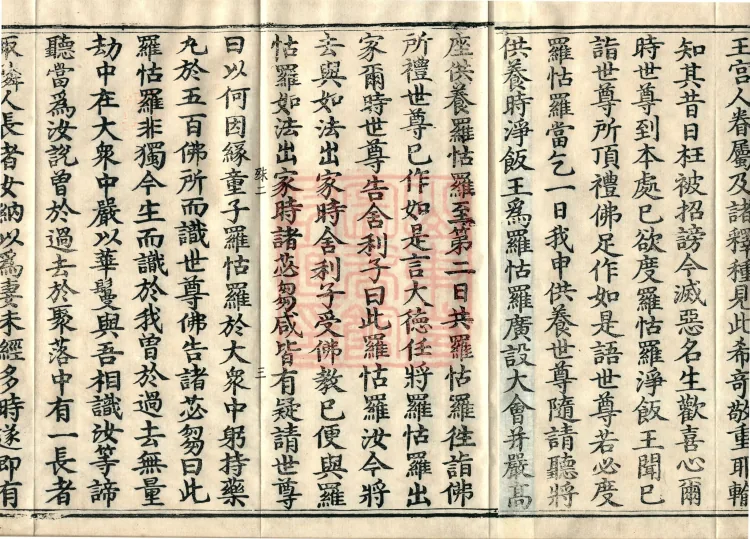 王宫人眷屬及諸釋種見此希竒敬重耶輸
知其昔日枉被招謗今滅惡名生歡喜心爾
時世尊到本處已欲度羅怙羅淨飯王聞已
詣世尊所頂禮佛足作如是語世尊若必度
羅怙羅當乞一日我申供養世尊隨請聽將
供養時淨飯王爲羅怙羅廣設大會幷嚴髙
座供養羅怙羅至第二日共羅怙羅往詣佛
所禮世尊已作如是言大德任將羅怙羅出
家爾時世尊告舍利子曰此羅怙羅汝今將
去與如法出家時舍利子受佛教已便與羅
怙羅如法出家時諸苾芻咸皆有疑請世尊
曰以何因緣童子羅怙羅於大衆中躬持藥
丸於五百佛所而識世尊佛告諸苾芻曰此
羅怙羅非獨今生而識於我曾於過去無量
劫中在大衆中嚴以華鬘與吾相識汝等諦
聽當爲汝説曾於過去於聚落中有一長者
取隣人長者女納以爲妻未經多時遂即有